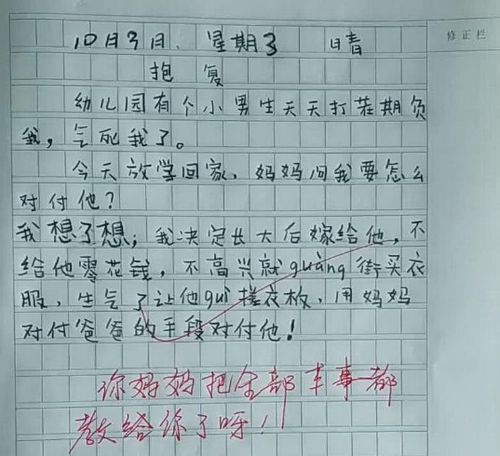 10月3日、星期3 晴
修正栏
抱复
幼儿园有个小男生天天打茬期负
我，气死我了。
今天放学回家，妈妈问我要怎么
对付他？
我想了想，我决定长大后嫁给他，不
给他零花钱，不高兴就guàng街买衣
服，生气了让他guì搓衣板，用妈妈
对付爸爸的手段对付他！
你妈妈把全部本事都
教给你了呀！